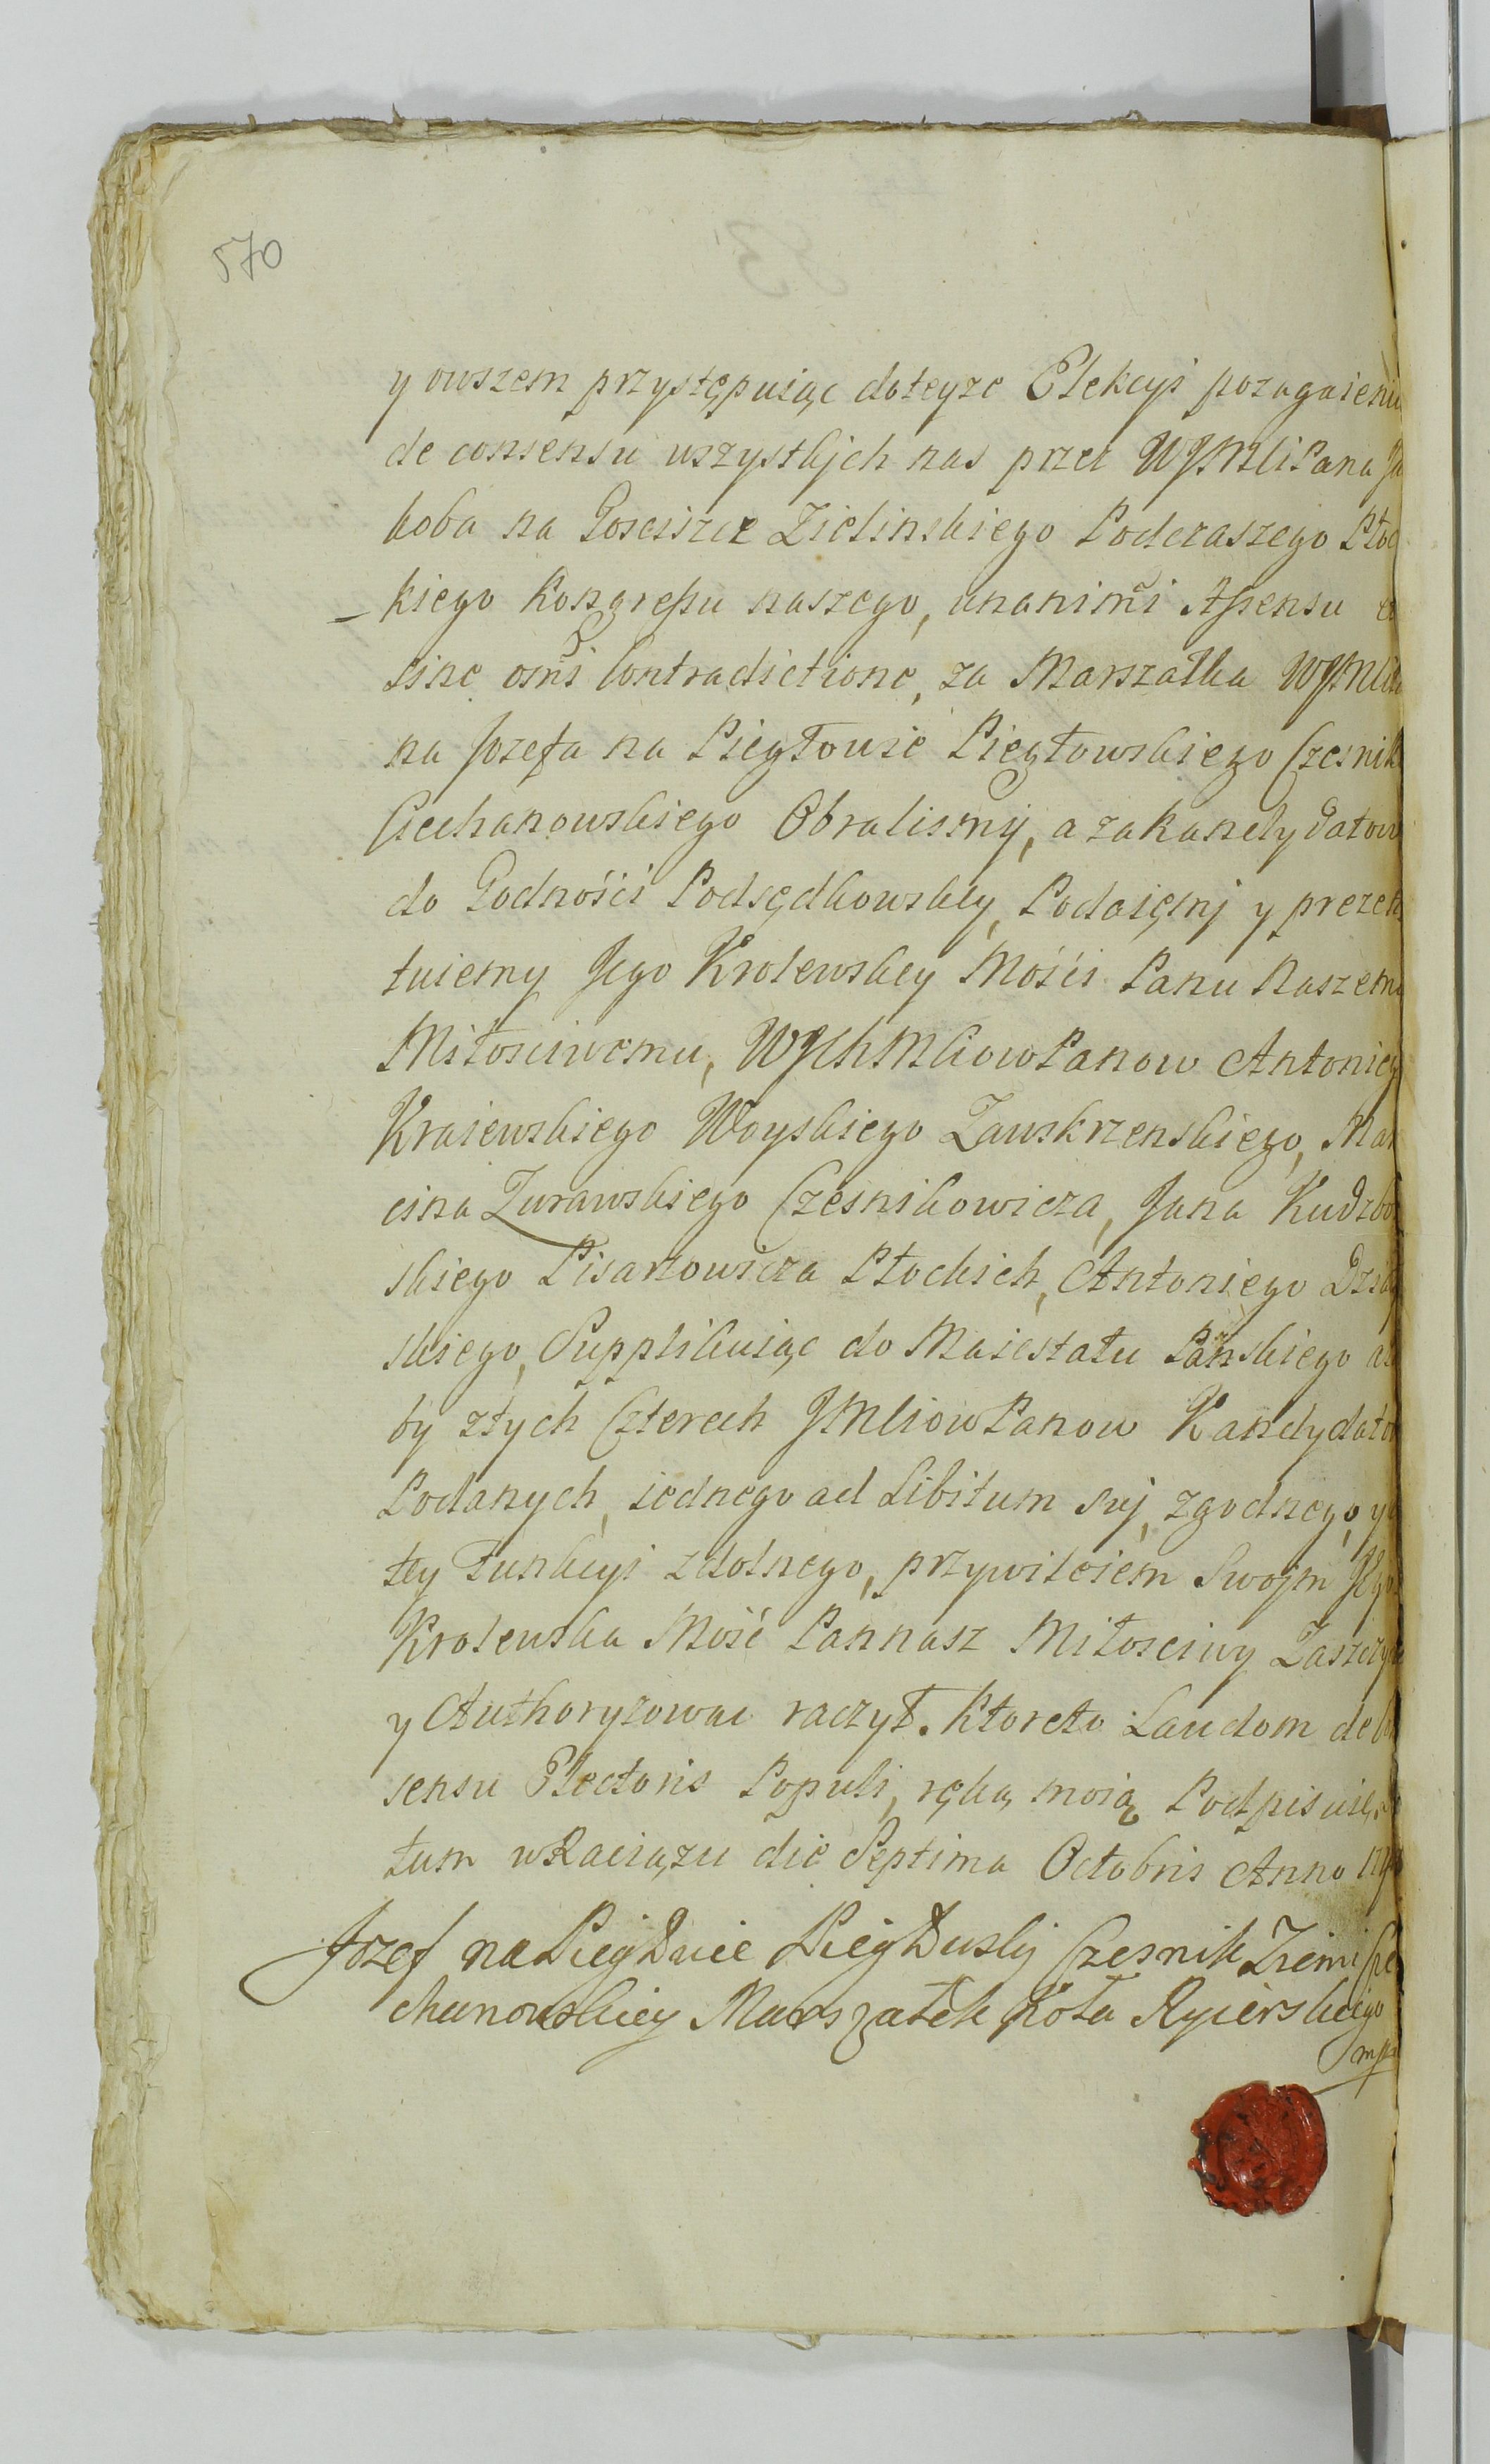 570
y owszem przystępuiąc doteyze Elekcyi pozagaieniu
de consensu wszystkjch nas przez WJMCiPana Ja
koba na Gosciszce Zielinskiego Podczaszego Płoc
kiego Kongreßu naszego, unanimi Aßensu et
sine omi Contradictione, za Marszałka WJMCiPa
na Jozefa na Pięgłowie Pięgłowskiego Czesnika
Ciechanowskiego Obralismy, a za kandydatow
do Godności Podsędkowskiey, Podaięmy y prezen
tuiemy Jego Krolewskiey Mości Panu Naszemu
Miłosciwemu, WJchMCiow Panow Antoniego
Kraiewskiego Woyskiego Zawskrzenskiego, Mar
cina Zurawskiego Czesnikowicza, Jana Kudzbor
skiego Pisarzowicza Płockich, Antoniego
skiego, Supplikuiąc do Maiestatu Pańskiego a
by ztych Czterech JMCiow Panow Kandydatow
Podanych, iednego ad Libitum sui, zgodnego, y
tey Funkcyi zdolnego, przywileiem Swoim Jego
Krolewska Mość Pannasz Miłosciwy Zaszczycić
y Authoryzowac raczył. Ktoreto Laudum de Con
sensu Electoris Populi, ręką moią Podpisuię
tum wRaciązu die Septima Octobris Anno
Jozef na Pięgłwie Pięgłwsky Czesnik Ziemi Cie
chanowskiey Marszałek Koła Rycierskiego
mp